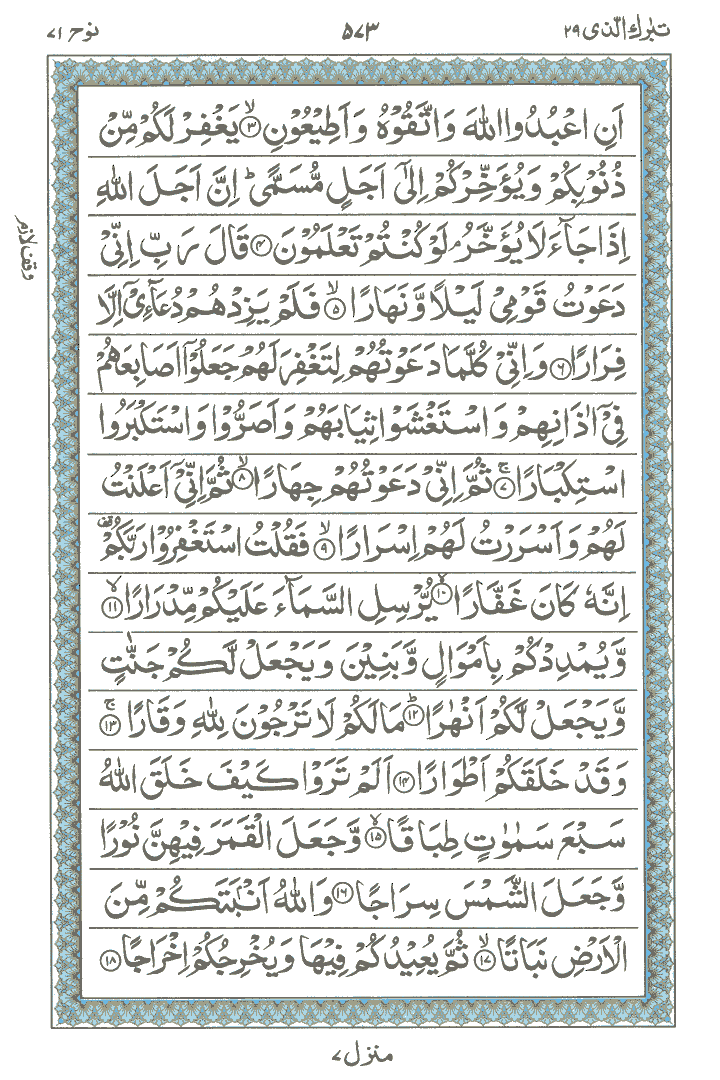 تبٰرك الّذی ٢٩
۵۷۳
نوح ٧١
اَنِ اعْبُدُوا اللّٰهَ وَاتَّقُوْهُ وَاَطِيْعُوْنِ ۙ﴿۳﴾ يَغْفِرْ لَكُمْ مِّنْ
ذُنُوْبِكُمْ وَيُؤَخِّرْكُمْ اِلٰٓى اَجَلٍ مُّسَمًّى ؕ اِنَّ اَجَلَ اللّٰهِ
اِذَا جَآءَ لَا يُؤَخَّرُ ۘ لَوْ كُنْتُمْ تَعْلَمُوْنَ ﴿۴﴾ قَالَ رَبِّ اِنِّيْ
وقف لازم
دَعَوْتُ قَوْمِيْ لَيْلًا وَّنَهَارًا ۙ﴿۵﴾ فَلَمْ يَزِدْهُمْ دُعَآءِيْٓ اِلَّا
فِرَارًا ﴿۶﴾ وَاِنِّيْ كُلَّمَا دَعَوْتُهُمْ لِتَغْفِرَ لَهُمْ جَعَلُوْٓا اَصَابِعَهُمْ
فِيْٓ اٰذَانِهِمْ وَاسْتَغْشَوْا ثِيَابَهُمْ وَاَصَرُّوْا وَاسْتَكْبَرُوا
اسْتِكْبَارًا ۚ﴿۷﴾ ثُمَّ اِنِّيْ دَعَوْتُهُمْ جِهَارًا ۙ﴿۸﴾ ثُمَّ اِنِّيْٓ اَعْلَنْتُ
لَهُمْ وَاَسْرَرْتُ لَهُمْ اِسْرَارًا ۙ﴿۹﴾ فَقُلْتُ اسْتَغْفِرُوْا رَبَّكُمْ
اِنَّهٗ كَانَ غَفَّارًا ۙ﴿۱۰﴾ يُّرْسِلِ السَّمَآءَ عَلَيْكُمْ مِّدْرَارًا ۙ﴿۱۱﴾
وَّيُمْدِدْكُمْ بِاَمْوَالٍ وَّبَنِيْنَ وَيَجْعَلْ لَّكُمْ جَنّٰتٍ
وَّيَجْعَلْ لَّكُمْ اَنْهٰرًا ؕ﴿۱۲﴾ مَا لَكُمْ لَا تَرْجُوْنَ لِلّٰهِ وَقَارًا ۚ﴿۱۳﴾
وَقَدْ خَلَقَكُمْ اَطْوَارًا ﴿۱۴﴾ اَلَمْ تَرَوْا كَيْفَ خَلَقَ اللّٰهُ
سَبْعَ سَمٰوٰتٍ طِبَاقًا ۙ﴿۱۵﴾ وَّجَعَلَ الْقَمَرَ فِيْهِنَّ نُوْرًا
وَّجَعَلَ الشَّمْسَ سِرَاجًا ﴿۱۶﴾ وَاللّٰهُ اَنْۢبَتَكُمْ مِّنَ
الْاَرْضِ نَبَاتًا ۙ﴿۱۷﴾ ثُمَّ يُعِيْدُكُمْ فِيْهَا وَيُخْرِجُكُمْ اِخْرَاجًا ﴿۱۸﴾
منزل ۷